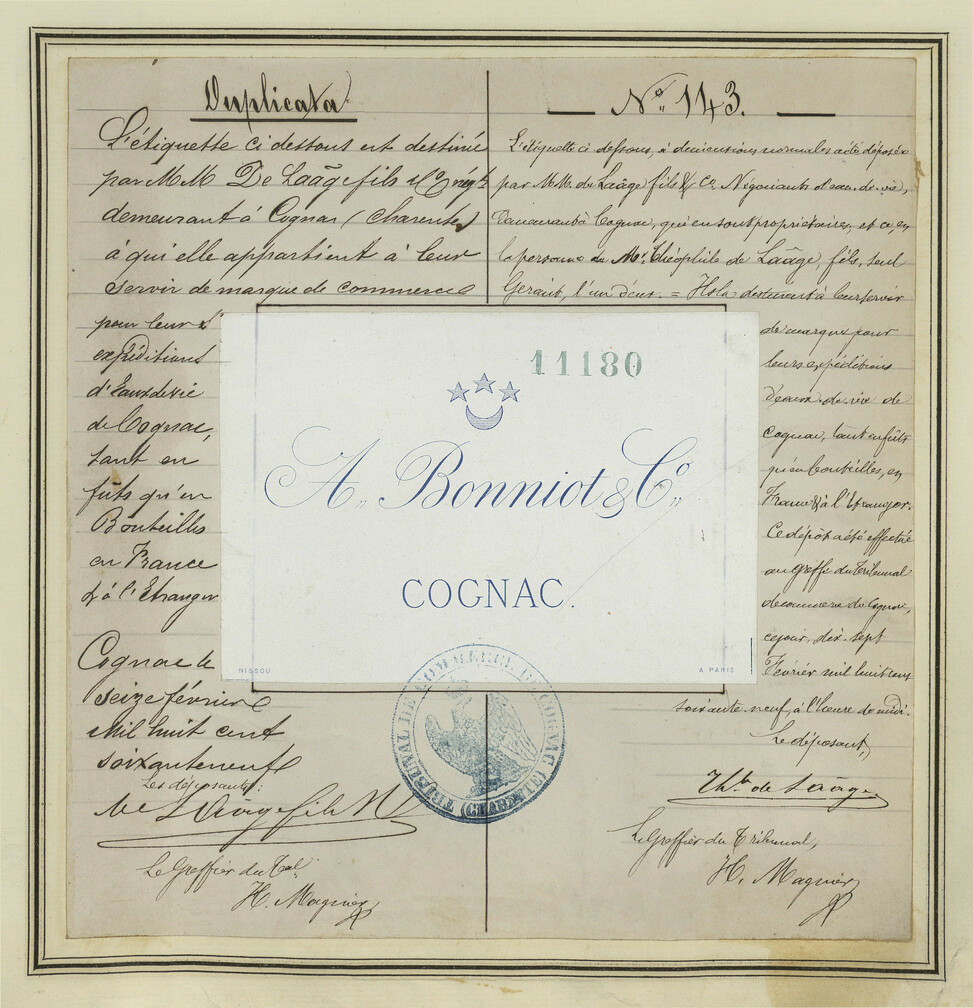 Duplicata
L'étiquette ci dessous est destiné
par MM De Laâge fils & Co negts
demeurant à Cognac (Charente)
à qui elle appartient à leur
servir de marque de commerce
pour leur
expéditions
d'Eaux de vie
de Cognac,
tant en
fûts qu'en
Bouteilles
en France
& à l'Etranger
Cognac le
seize février
Mil huit cent
soixante neuf
Les déposants:
de Laâge fils
Le Greffier du Tal
H. Magnier
No. 143.
L'étiquette ci dessous, à dimensions normales a été déposée
par MM. de Laâge fils & Co. Négociants d'eau-de-vie,
demeurant à Cognac, qui en sont propriétaires, et ce, en
la personne de Mr. Théophile de Laâge, fils, seul
Gérant, l'un d'eux. = destinent à leur servir
de marque pour
leurs expéditions
d'eaux-de-vie de
Cognac, tant en fûts
qu'en bouteilles, en
France & à l'étranger.
Ce dépôt a été effectué
au Greffe du Tribunal
de commerce de Cognac,
ce jour, dix-sept
Février mil huit cent
soixante-neuf, à l'heure de midi.
Le déposant,
Th. de Laâge
Le Greffier du Tribunal,
H. Magnier
11180
A. Bonniot & Co.
COGNAC.
NISSOU
A PARIS
TRIBUNAL DE COMMERCE DE COGNAC